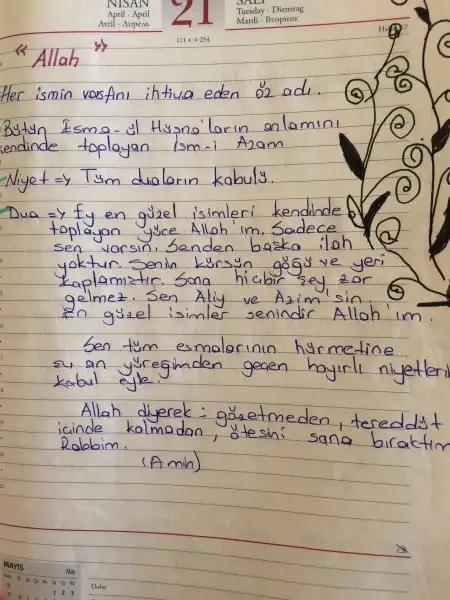 NİSAN
April · April
Avril · Апрель
21
SALI
Tuesday · Dienstag
Mardi · Вторник
111 - 4 · 254
« Allah »
Her ismin vasfını ihtiva eden öz adı.
Bütün Esma-ül Hüsna'ların anlamını
kendinde toplayan İsm-i Azam
Niyet => Tüm duaların kabulü.
Dua => Ey en güzel isimleri kendinde
toplayan yüce Allah'ım. Sadece
sen varsın, Senden başka ilah
yoktur. Senin kürsün göğü ve yeri
kaplamıştır. Sana hiçbir şey zor
gelmez. Sen Aliy ve Azim'sin.
En güzel isimler senindir Allah'ım.
Sen tüm esmalarının hürmetine
şu an yüreğimden geçen hayırlı niyetleri
kabul eyle.
Allah diyerek: gözetmeden, tereddüt
içinde kalmadan, ötesini sana bıraktım
Rabbim.
(Amin)
MAYIS
May
1 2 3
Notlar